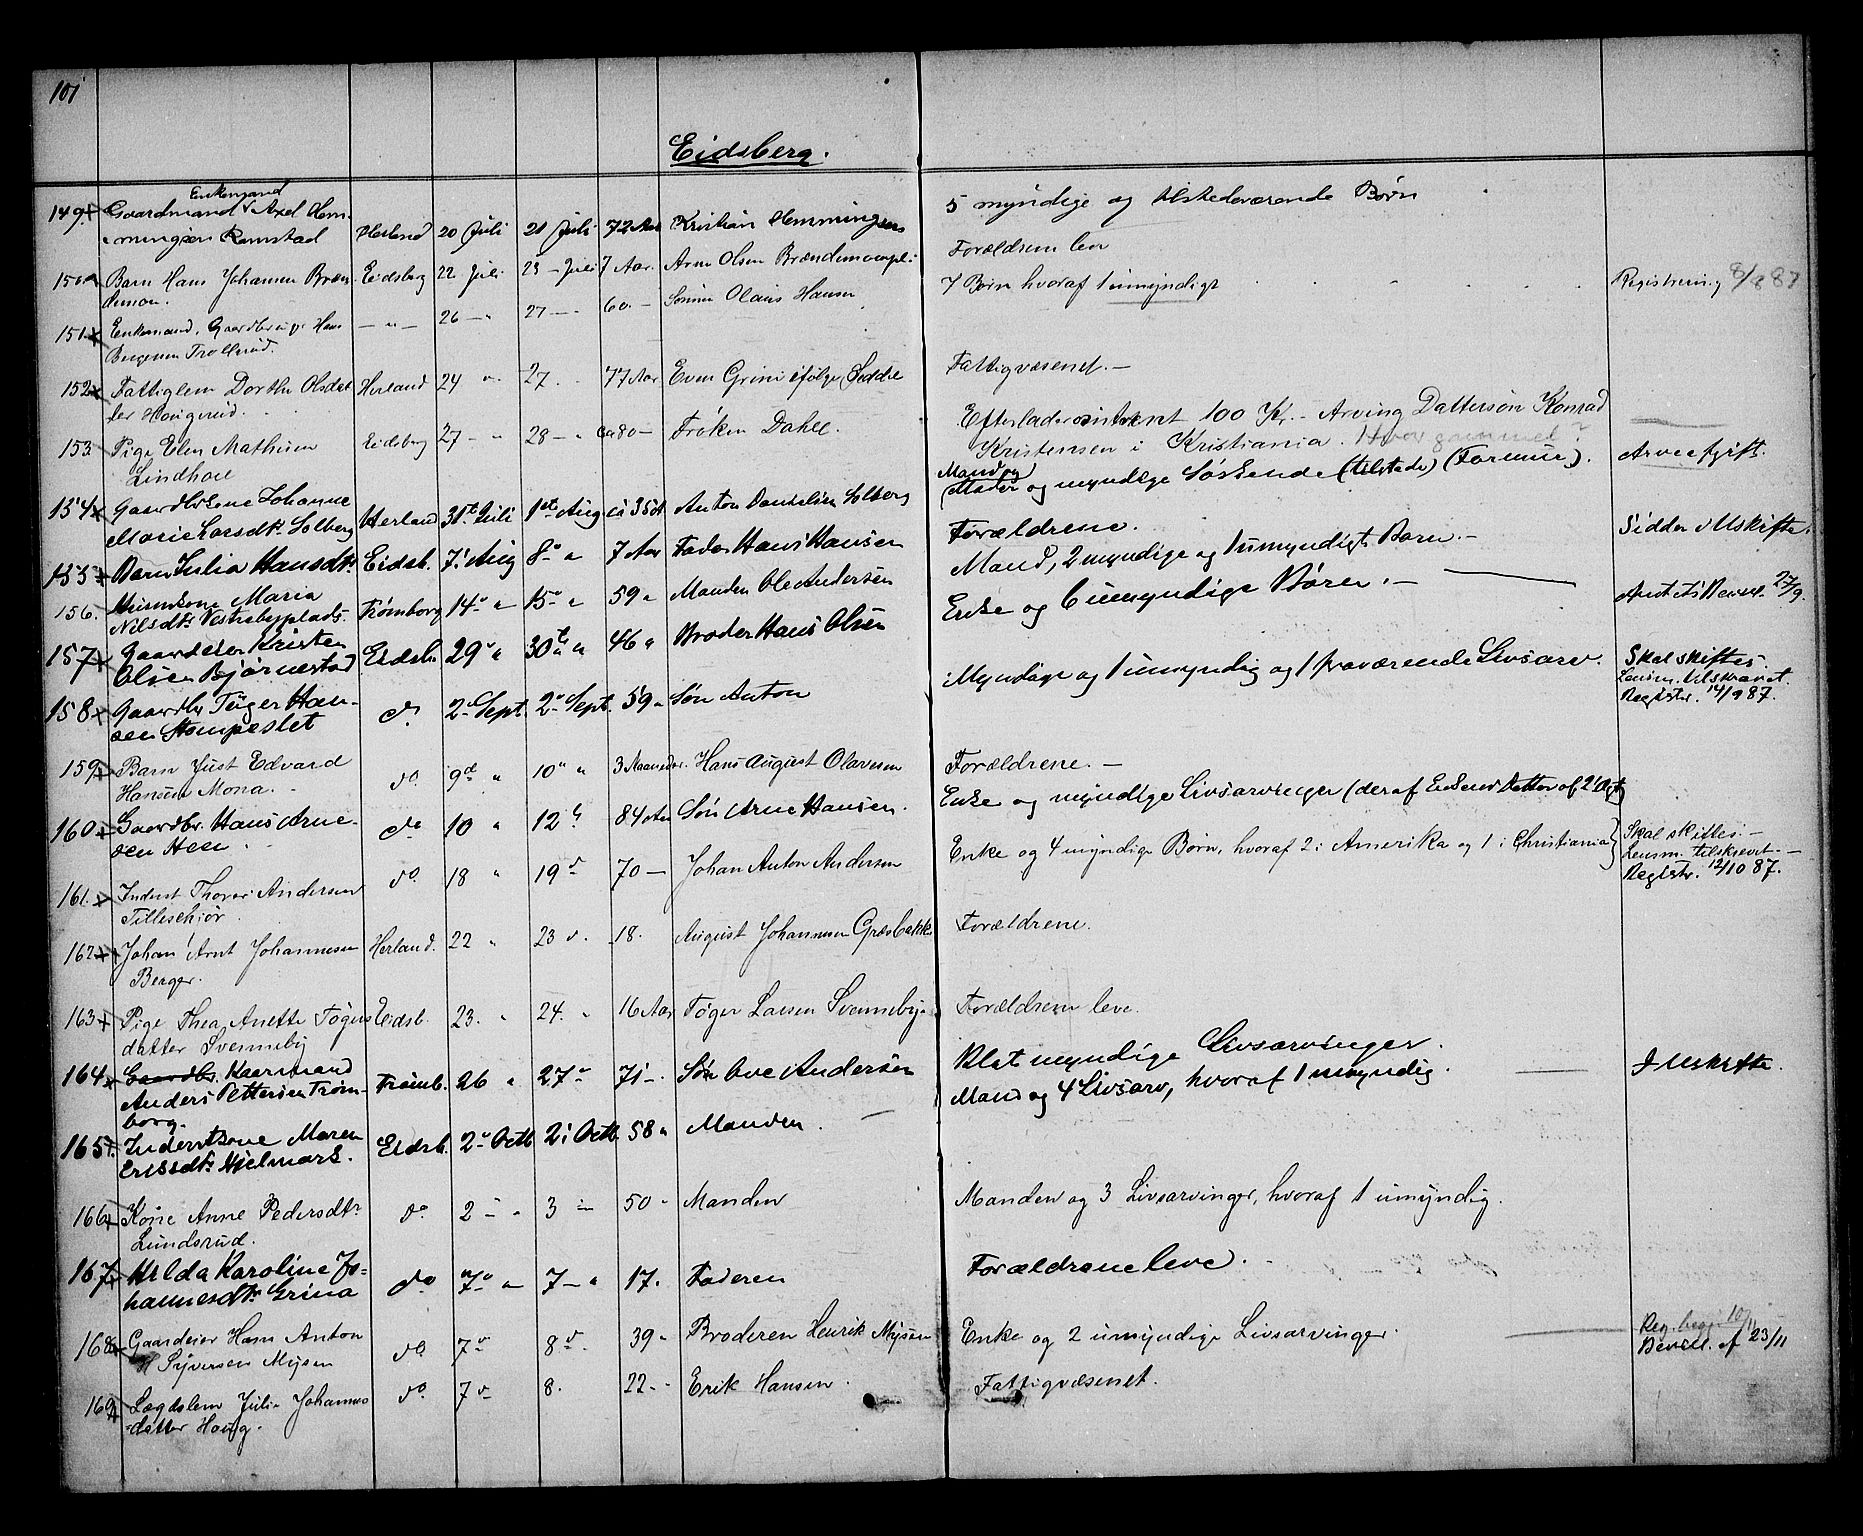 101
Eidsberg.
149. Enkemand
Gaardmand Axel Hem- Herland 20 Juli 21 Juli 72 Aar Kristian Hemmingsen 5 myndige og tilstedeværende Børn
mingsen Ramstad
150 Barn Hans Johansen Bræn- Eidsberg 22 Juli 23 - Juli 7 Aar. Arne Olsen Brændemoenpl. Forældrene lev
demoen.
151. Enkemand, Gaardbruger Hans — " — 26 — " 27 — 60 — Sønnen Olaus Hansen 7 Børn hvoraf 1 umyndigt Registrering 8/8 87
Trollerud.
152 Fattiglem Dorthe Olsdat- Herland 24 " 27. 77 Aar Even Grini ifølge Seddel Fattigvæsenet. —
ter Haugerud.
153 Pige Elen Mathisen Eidsberg 27 - " 28 - " ca 80 - Frøken Dahll. Efterlader omtrent 100 Kr. - Arving Dattersøn Konrad
Lindhoel Kristensen i Kristiania. Hvor gammel? Arveafgift.
154 Gaardbr.kone Johanne Herland 31te Juli 1ste Aug ca 35 A Anton Danielsen Solberg Mand og (Moder og myndige Søskende (tilstede) (Formue).
Marie Larsdtr. Solberg Sidder i Uskifte.
155 Barn Julia Hansdtr. Eidsb. 7. Aug 8 " 7 Aar Fader Hans Hansen Forældrene.
156. Huusmkone Maria Trømborg 14 " 15 " 59 " Manden Ole Andersen Mand, 2 myndige og 1 umyndigt Barn. -
Nilsdtr. Vestrebyplads. Anst. ts Bevill. 27/9.
157 Gaardeier Kristen Eidsb. 29 " 30te " 46 " Broder Hans Olsen Enke og 6 umyndige Børn. —
Olsen Bjørnestad Skal skiftes.
158 Gaardbr Tøger Han- do 2 Sept. 2 Sept. 59 " Søn Anton Myndige og 1 umyndig og 1 fraværende Livsarv. Lensm. tilskrevet.
sen Registr. 14/9 87.
159 Barn Just Edvard do. 9d " 10 " " 3 Maaneder. Hans August Olavesen Forældrene. —
Hansen Mona.
160 Gaardbr. Hans Arne- do 10 " 12 84 Aar Søn Arne Hansen. Enke og myndige Livsarvinger (deraf
sen Heen. Skal skiftes. —
161. Inderst Thorer Andersen do. 18 " 19 70 — Johan Anton Andersen Enke og 4 myndige Børn, hvoraf 2 i Amerika og 1 i Christiania Lensm. tilskrevet. —
Tilleschiør. Registr. 12/10 87.
162 Johan Arnt Johannesen Herland. 22 " 23 18. August Johannesen Græsbakk. Forældrene.
Berger.
163 Pige Thea Anette Tøgers Eidsb. 23. " 24. " 16 Aar Tøger Larsen Svenneby Forældrene leve.
datter Svenneby
164 Gaardbr. Kaarmand Trømb. 26 " 27 71 —. Søn Ove Andersen Blot myndige Livsarvinger.
Anders Pettersen Trøm- I Uskifte.
borg.
165. Inderstkone Maren Eidsb. 2 Octb 2 Octb 58 " Manden. Mand og 4 Livsarv, hvoraf 1 umyndig.
Eriksdtr. Hjelmark.
166 Kone Anne Pedersdtr do 2 - " 3 — 50 - Manden Manden og 3 Livsarvinger, hvoraf 1 umyndig.
Lundsrud.
167 Hilda Karoline Jo- do 7 " 7 - " 17. Faderen Forældrene leve. -
hannesdtr Grina
168 Gaardeier Hans Anton do. 7 8. 39 " Broderen Henrik Mysen Enke og 2 umyndige Livsarvinger. Reg. begj. 10/11
H Syversen Mysen Bevill. af 23/11
169 Lægdslem Julie Johannes do 7 8. 22. - Erik Hansen. Fattigvæsenet.
datter Haug.